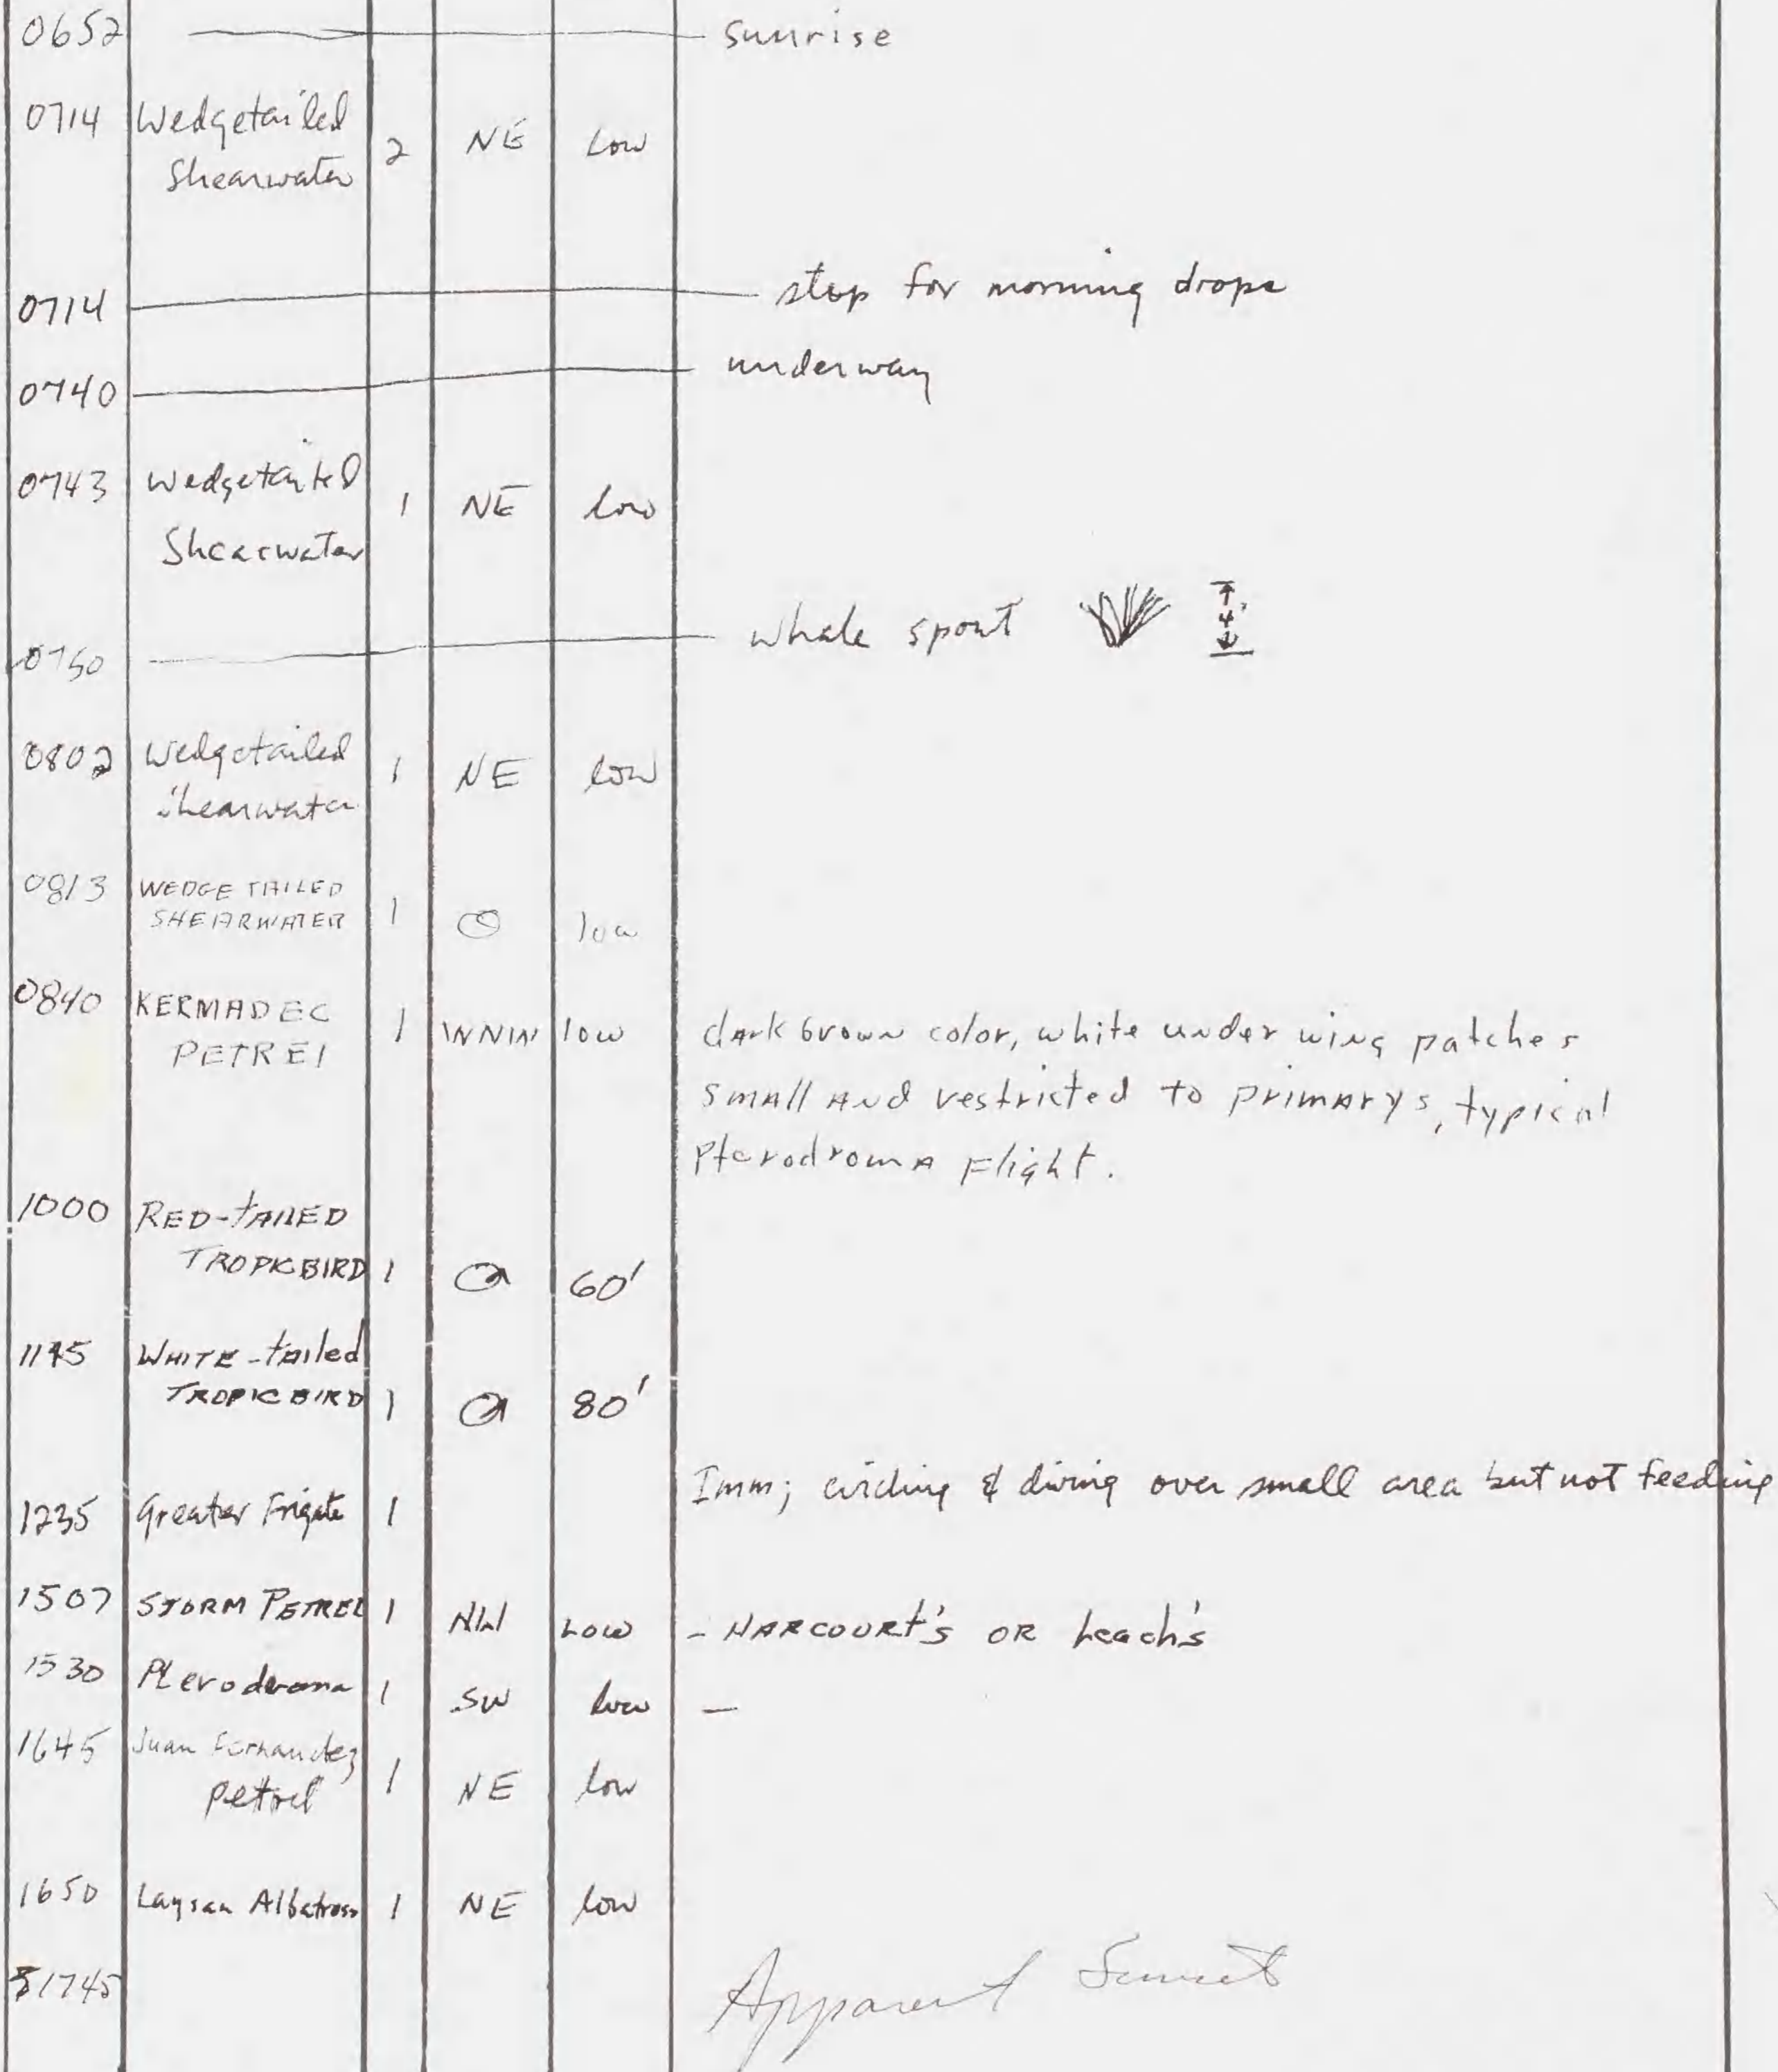 0652 sunrise
0714 Wedgetailed
Shearwater 2 NE Low
0714 stop for morning drops
0740 underway
0743 Wedgetailed
Shearwater 1 NE low
0750 whale spout 4'
0802 Wedgetailed
Shearwater 1 NE low
0813 WEDGE TAILED
SHEARWATER 1 low
0840 KERMADEC
PETREL 1 WNW low dark brown color, white under wing patches
small and restricted to primarys, typical
Pterodroma Flight.
1000 RED-tAILED
TROPICBIRD 1 60'
1145 WHITE-tailed
TROPICBIRD 1 80'
Imm; circling & diving over small area but not feeding
1235 Greater Frigate 1
1507 STORM PETREL 1 NW LOW - HARCOURt's OR Leach's
1530 Pterodroma 1 SW low —
1645 Juan Fernandez
Petrel 1 NE low
1650 Laysan Albatross 1 NE low
1745 Apparent Sunset